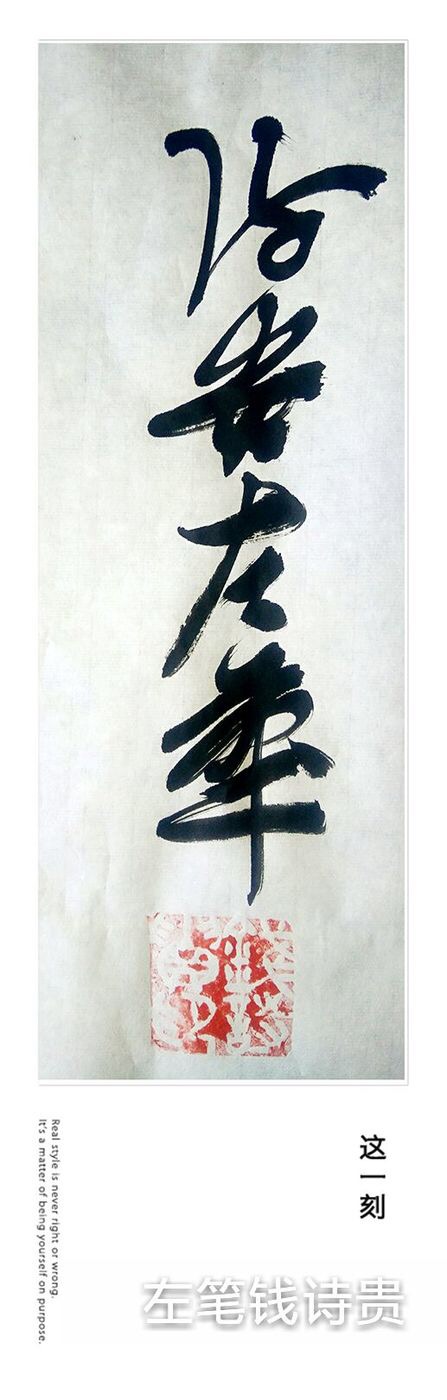 左筆
这一刻
Real style is never right or wrong.
It's a matter of being yourself on purpose.
左笔钱诗贵